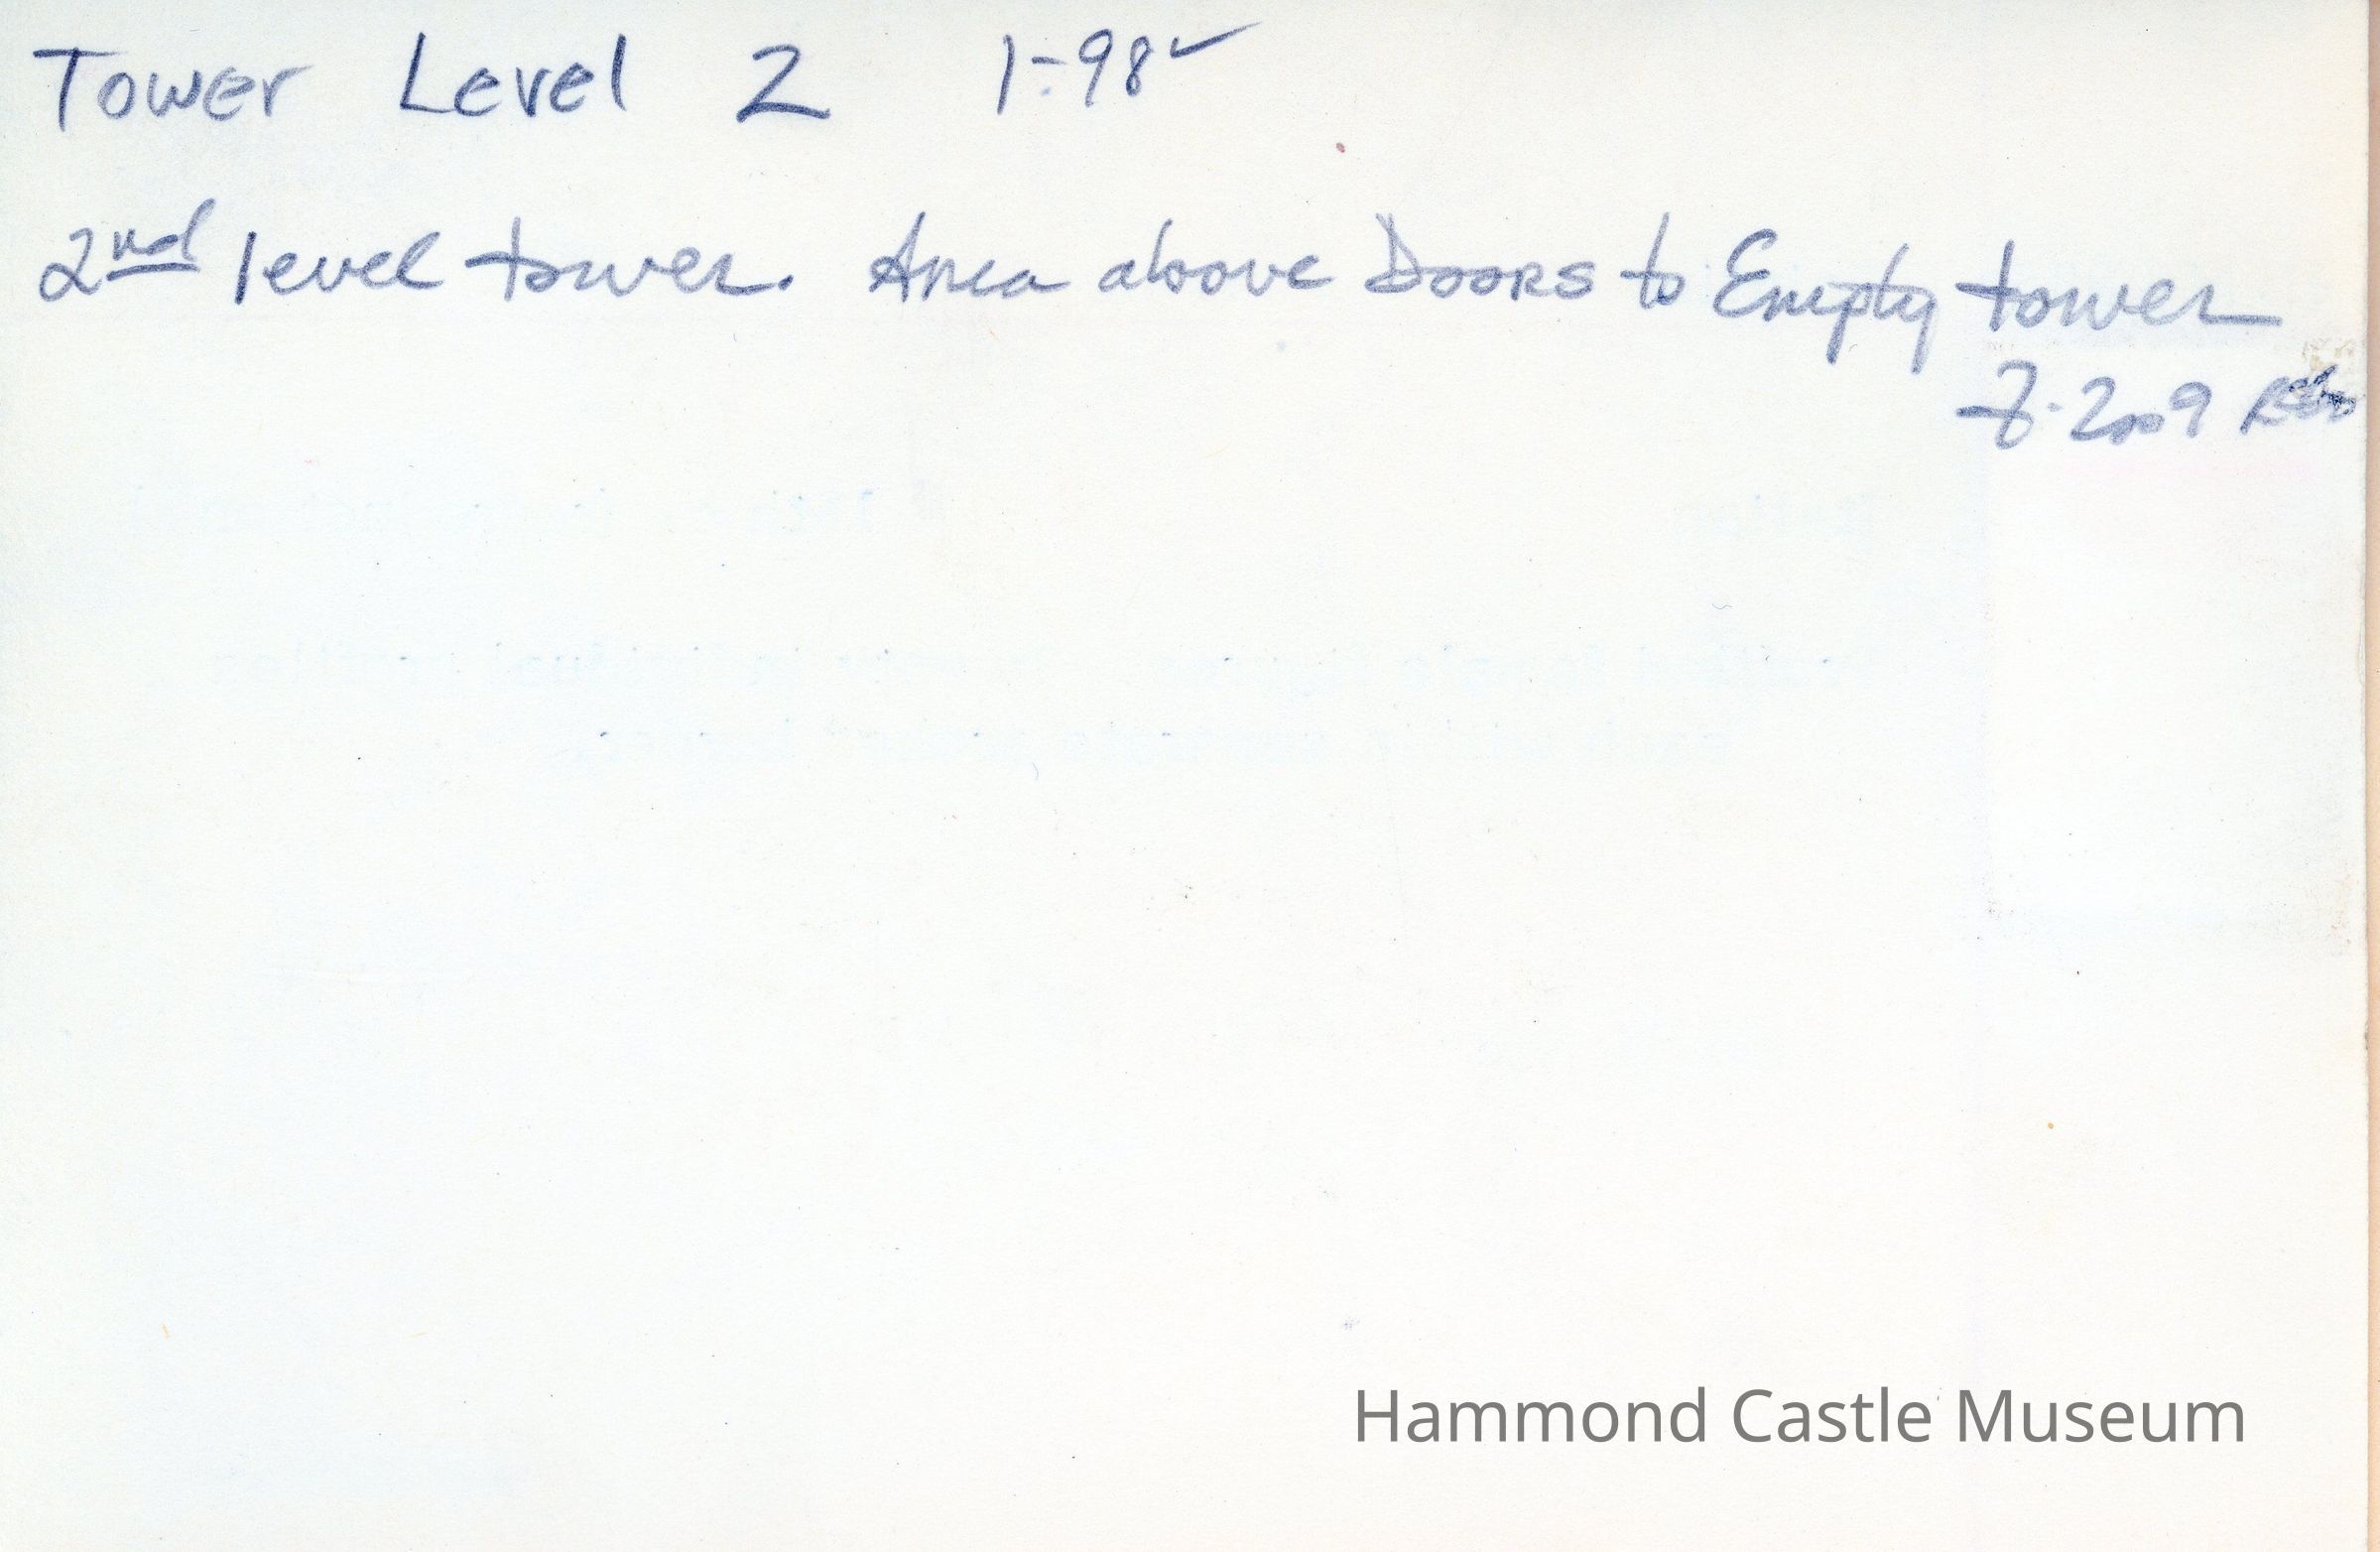 Tower Level 2 1-98 ✓
2nd level tower. Area above Doors to Empty tower
7-2009
Hammond Castle Museum